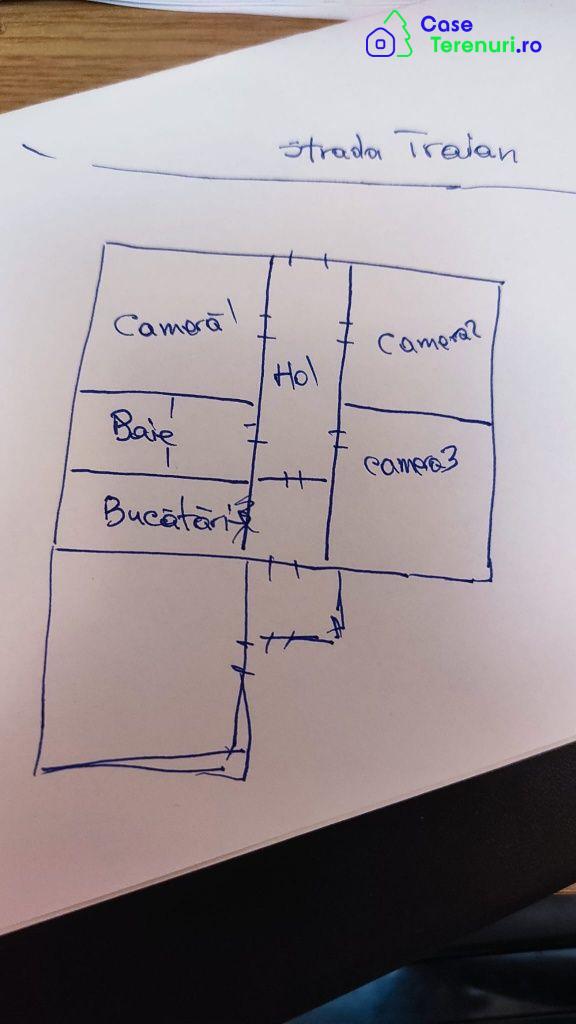 Case
Terenuri.ro
strada Traian
Cameră 1
Camera2
Hol
Baie
camera3
Bucătărie